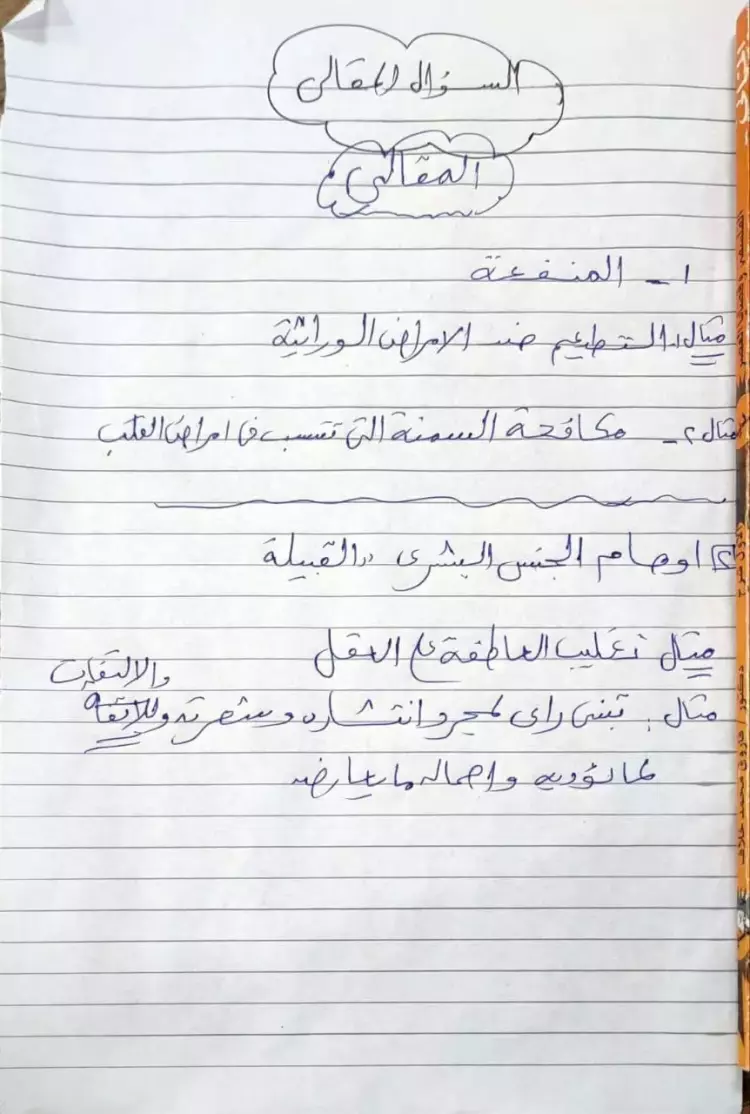 السؤال المقالى
المقالى
١ - المنفعة
مثال١ـ التطعيم ضد الامراض الوراثية
مثال ٢ - مكافحة السمنة التى تتسبب فى امراض القلب
٢ اوهام الجنس البشرى "القبيلة
مثال تغليب العاطفة على العقل
والالتفات
مثال: تبنى راى لمجرد انتشاره وشهرته
لما يؤيده واهماله ما يعارضه